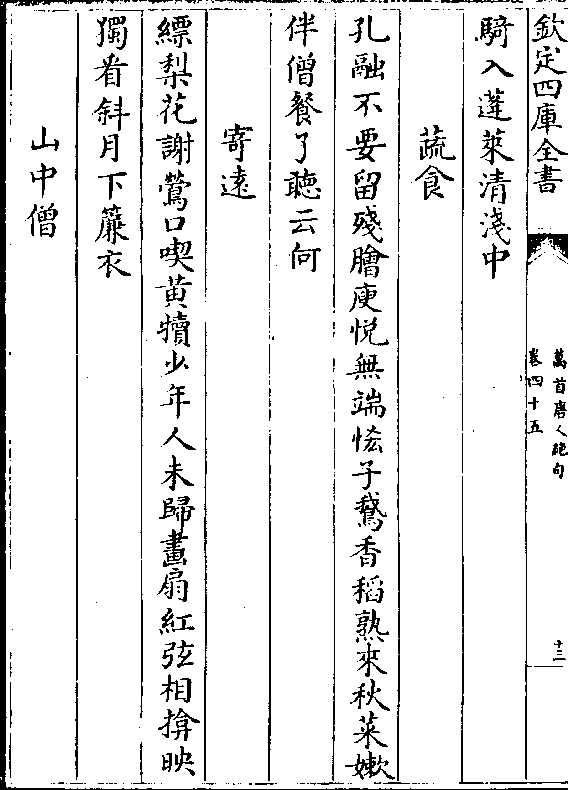 欽定四庫全書
萬首唐人絕句
卷四十五
十三
騎入蓬萊清淺中
蔬食
孔融不要留殘膾庾悦無端恡子鵞香稻熟來秋菜嫩
伴僧餐了聽云何
寄遠
縹梨花謝鶯口喫黄犢少年人未歸畫扇紅弦相揜映
獨看斜月下簾衣
山中僧